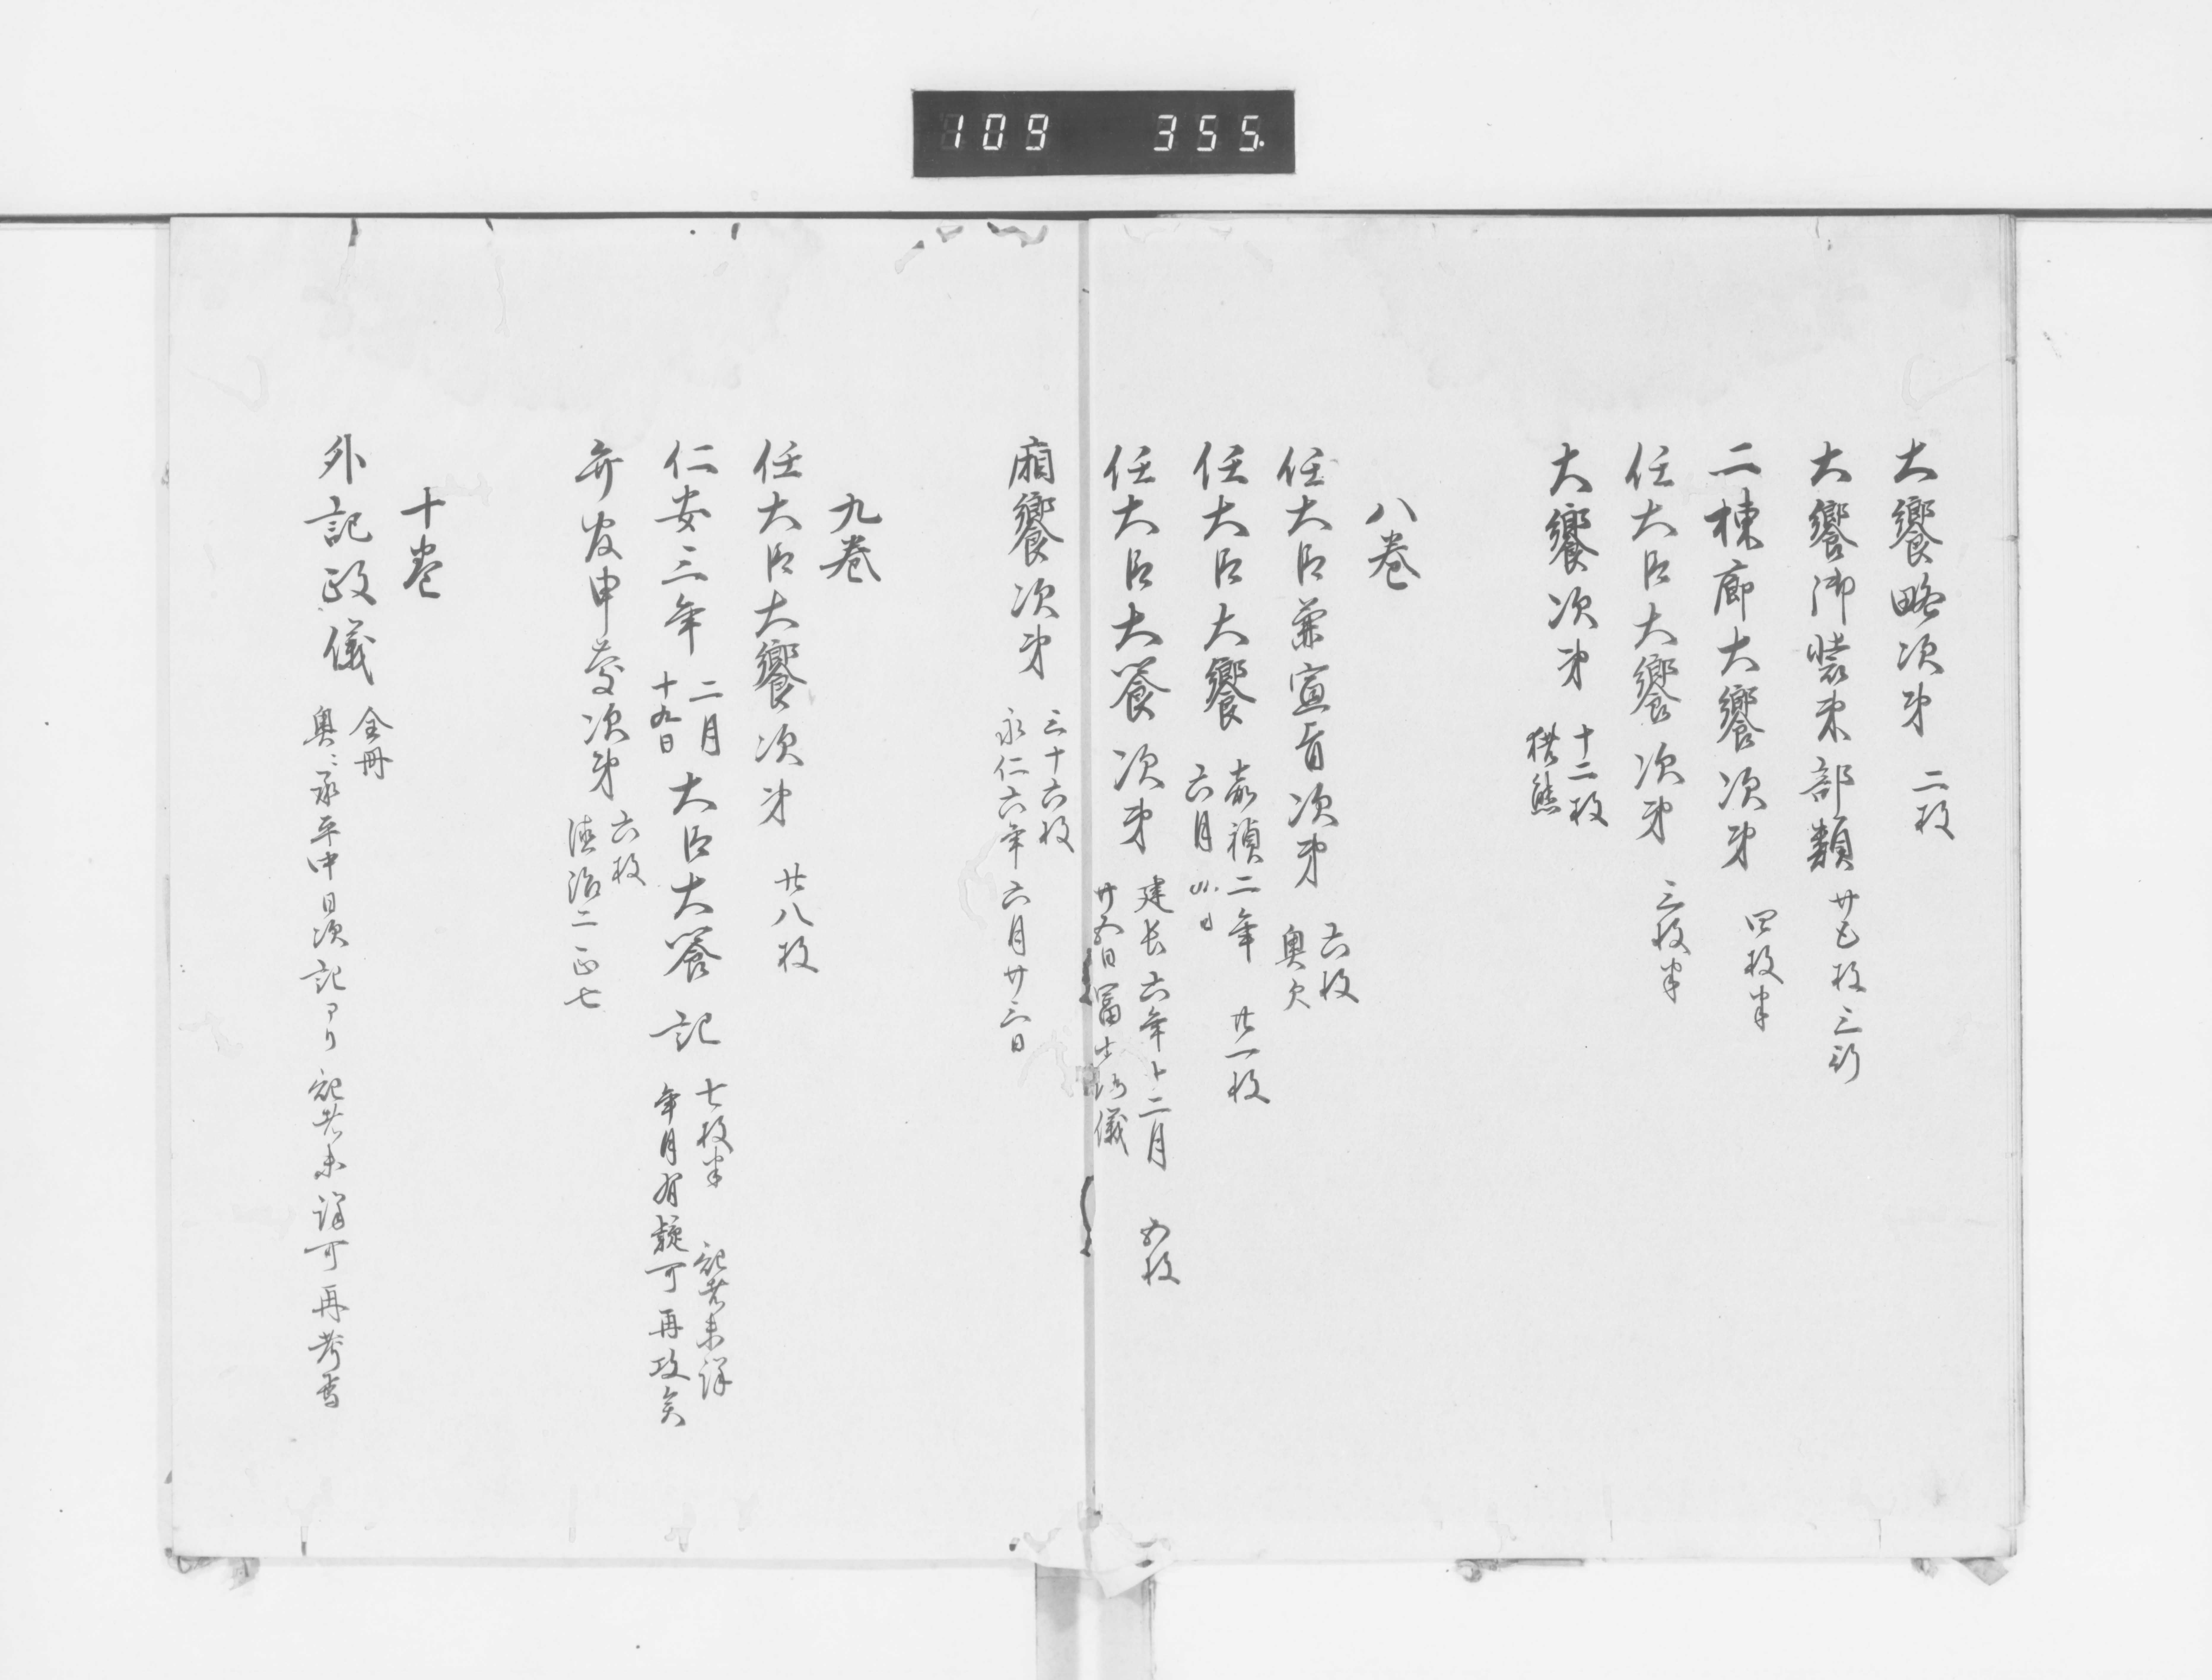 109 355.
大饗略次第 二枚
大饗御装束部類 廿七枚三行
二棟廊大饗次第 四枚半
任大臣大饗次第 三枚半
大饗次第 十二枚
猪熊
八巻
任大臣兼宣旨次第 六枚
奥欠
任大臣大饗 嘉禎二年 廿一枚
六月
任大臣大饗次第 建长六年十二月 五枚
廿五日冨小路儀
廂饗次第 三十六枚
永仁六年六月廿三日
九巻
任大臣大饗次第 廿八枚
仁安三年 二月
十九日 大臣大饗記 七枚半 記者未詳
年月有疑可再攷矣
弁官申慶次第 六枚
徳治二正七
十巻
外記政儀 全冊
奥ニ承平中日次記アリ 記者未詳可再考焉